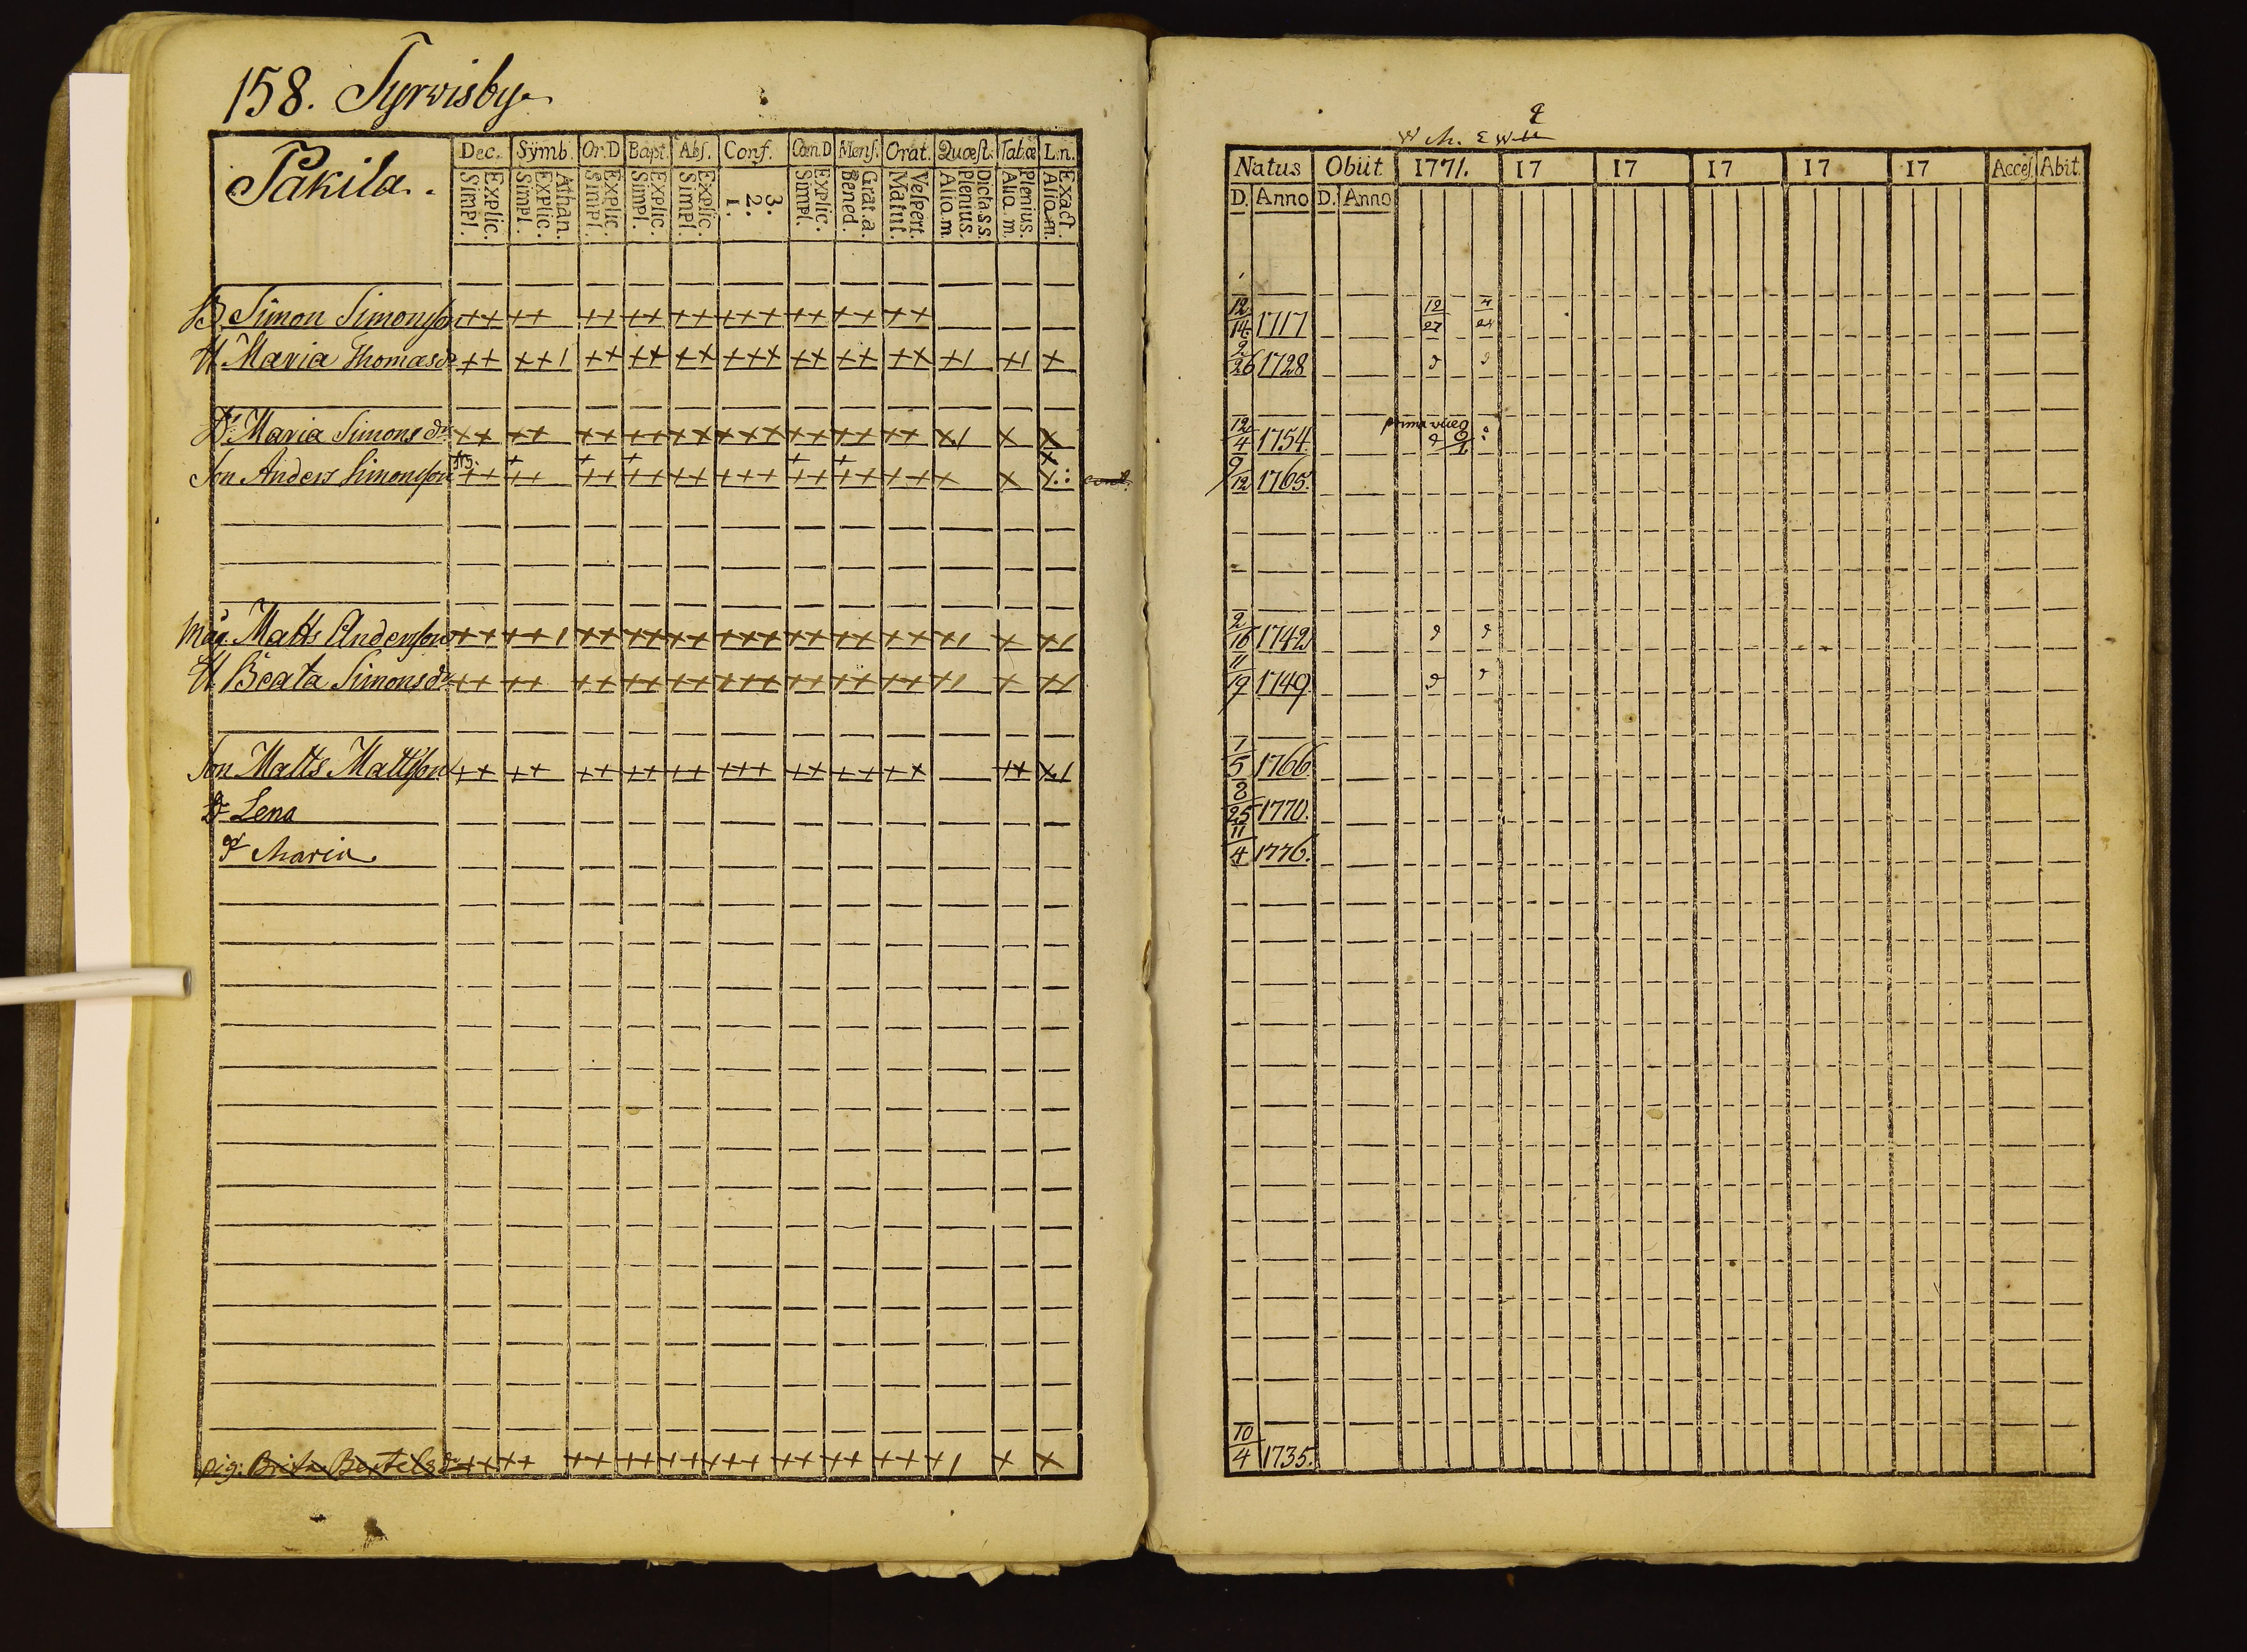 158. Tyrvisby
Pakila.
Dec. Symb. Or.D Bapt. Abs. Conf. Cœn.D Mens. Orat. Quæst. Tab.æ L.n.
Explic. Simpl. Athan. Explic. Simpl. Explic. Simpl. Explic. Simpl. Explic. Simpl. 3. 2. 1. Explic. Simpl. Grat.a. Bened. Vespert. Matut. Dicta.S.S. Plenius. Alio.m Plenius. Alio.m. Exact. Alio.m.
B. Simon Simonsson ++ ++ ++ ++ ++ +++ ++ ++ ++
H. Maria Thomasdr ++ ++1 ++ ++ ++ +++ ++ ++ ++ +1 +1 +
Dr Maria Simonsdr ++ ++ ++ ++ ++ +++ ++ ++ ++ +1 + +
Son Anders Simonsson ++ ++ ++ ++ ++ +++ ++ ++ ++ + +
Måg. Matts Andersson ++ ++1 ++ ++ ++ +++ ++ ++ ++ +1 + +1
H. Beata Simonsdr ++ ++ ++ ++ ++ +++ ++ ++ ++ +1 + +1
Son Matts Mattsson ++ ++ ++ ++ ++ +++ ++ ++ ++ ++ +1
Dr Lena
Dr Maria
pig: Brita Bertelsdr ++ ++ ++ ++ ++ +++ ++ ++ ++ +1 + +
Natus Obiit 1771. 17 17 17 17 17 Acces. Abit.
D. Anno D. Anno
12/14 1717 12/27
9/26 1728
12/4 1754
9/12 1765.
2/16 1742
11/19 1749
1/5 1766
2/25 1770.
11/4 1776.
10/4 1735.